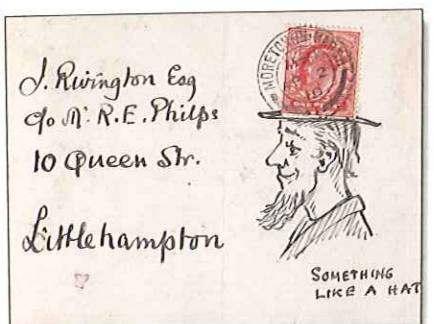 J. Rivington Esq
c/o Mr. R.E. Philps
10 Queen Str.
Littlehampton
SOMETHING
LIKE A HAT